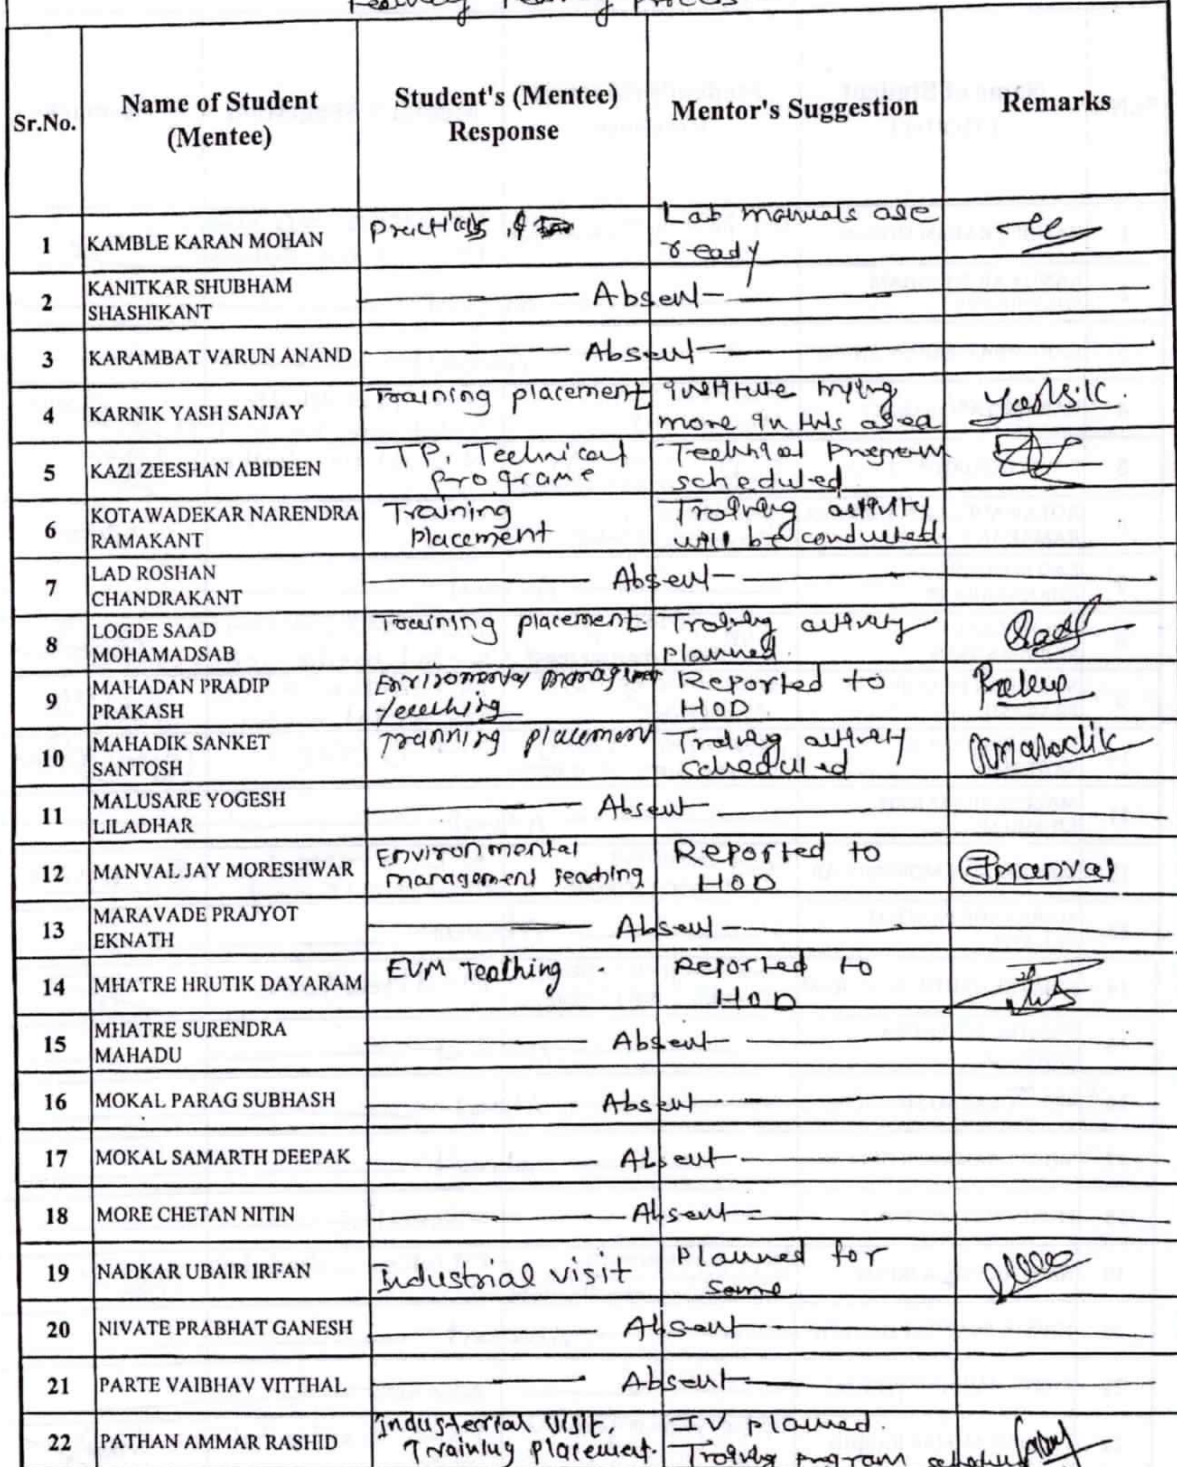 Teaching Learning process
Sr.No.
Name of Student
(Mentee)
Student's (Mentee)
Response
Mentor's Suggestion
Remarks
1
KAMBLE KARAN MOHAN
Practicals
Lab manuals are
ready
2
KANITKAR SHUBHAM
SHASHIKANT
Absent
3
KARAMBAT VARUN ANAND
Absent
4
KARNIK YASH SANJAY
Training placement
institute trying
more in this area
5
KAZI ZEESHAN ABIDEEN
TP, Technical
programe
Technical program
scheduled
6
KOTAWADEKAR NARENDRA
RAMAKANT
Training
placement
Training activity
will be conducted.
7
LAD ROSHAN
CHANDRAKANT
Absent
8
LOGDE SAAD
MOHAMADSAB
Training placement
Training activity
planned.
9
MAHADAN PRADIP
PRAKASH
teaching
Reported to
HOD.
10
MAHADIK SANKET
SANTOSH
Tranning placement
Training activity
scheduled
Smahadik
11
MALUSARE YOGESH
LILADHAR
Absent
12
MANVAL JAY MORESHWAR
Environmental
management teaching
Reported to
HOD
manval
13
MARAVADE PRAJYOT
EKNATH
Absent
14
MHATRE HRUTIK DAYARAM
EVM Teathing.
Reported to
HOD
15
MHATRE SURENDRA
MAHADU
Absent
16
MOKAL PARAG SUBHASH
Absent
17
MOKAL SAMARTH DEEPAK
Absent
18
MORE CHETAN NITIN
Absent
19
NADKAR UBAIR IRFAN
Industrial visit
Planned for
same
20
NIVATE PRABHAT GANESH
Absent
21
PARTE VAIBHAV VITTHAL
Absent
22
PATHAN AMMAR RASHID
Industerrial visit,
Training placement.
IV planned.
Training program